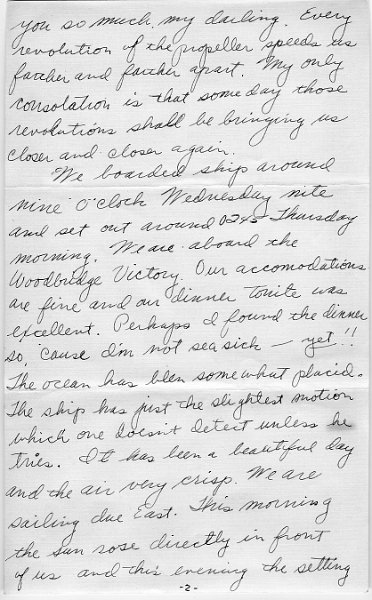 you so much, my darling. Every
revolution of the propeller speeds us
farther and farther apart. My only
consolation is that some day those
revolutions shall be bringing us
closer and closer again.
We boarded ship around
nine o'clock Wednesday nite
and set out around 0245 Thursday
morning. We are aboard the
Woodbridge Victory. Our accomodations
are fine and our dinner tonite was
excellent. Perhaps I found the dinner
so, cause I'm not seasick — yet!!
The ocean has been somewhat placid.
The ship has just the slightest motion
which one doesn't detect unless he
tries. It has been a beautiful day
and the air very crisp. We are
sailing due East. This morning
the sun rose directly in front
of us and this evening the setting
-2-